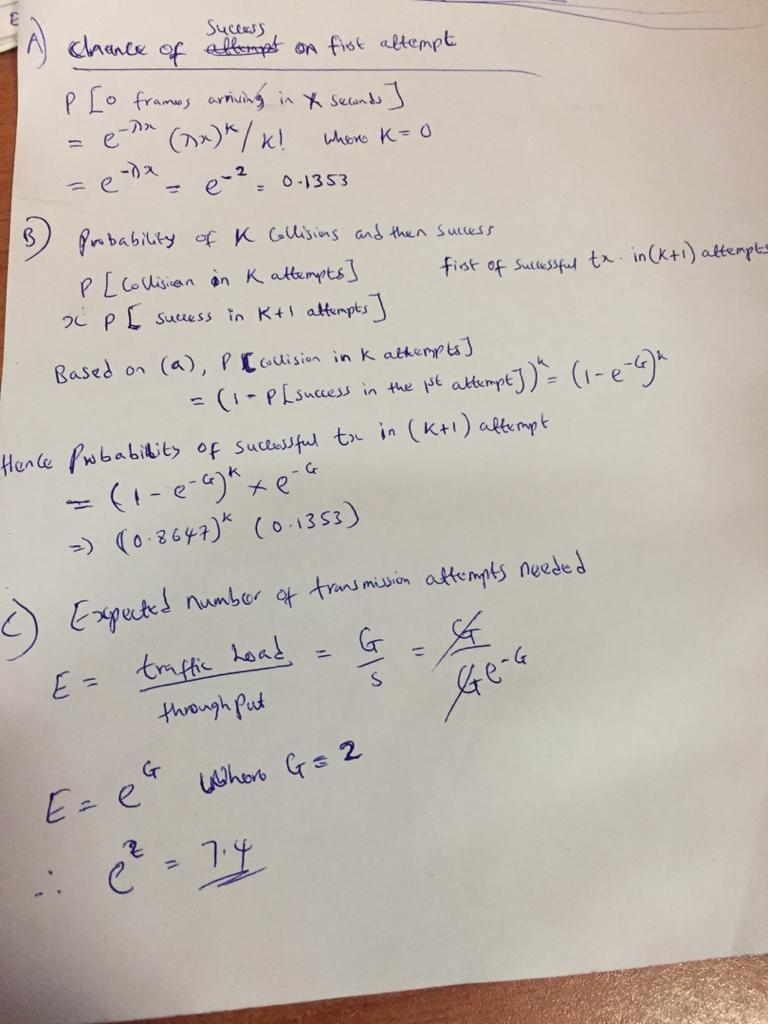 Success
A) Chance of attempt on first attempt
P [0 frames arriving in X seconds]
= e^-λx (λx)^k / k! where K = 0
= e^-λx = e^-2 = 0.1353
B) Probability of K Collisions and then Success
P [Collision in K attempts] first of successful tx. in (K+1) attempts
x P [ success in K+1 attempts]
Based on (a), P [collision in K attempts]
= (1 - P[success in the 1st attempt])^k = (1 - e^-G)^k
Hence Probability of successful tx in (K+1) attempt
= (1 - e^-G)^K × e^-G
=> (0.8647)^k (0.1353)
C) Expected number of transmission attempts needed
E = traffic load / throughput = G / S = G / G e^-G
E = e^G where G = 2
∴ e^2 = 7.4